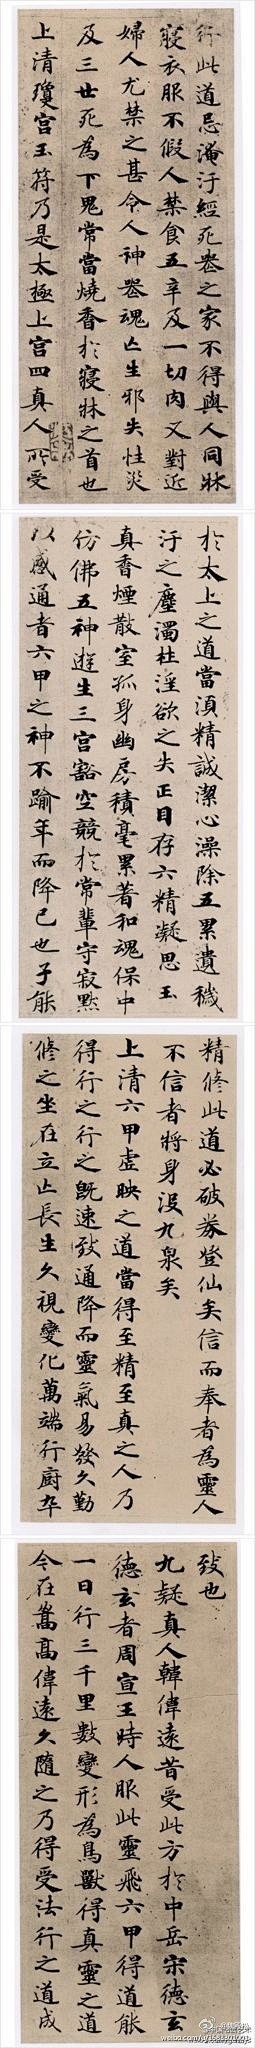 行此道忌淹汙經死喪之家不得與人同牀
寢衣服不假人禁食五辛及一切肉又對近
婦人尤禁之甚令人神喪魂亡生邪失性災
及三世死為下鬼常當燒香於寢牀之首也
上清瓊宮玉符乃是太極上宮四真人所受
於太上之道當須精誠潔心澡除五累遺穢
汙之塵濁杜淫欲之失正目存六精凝思玉
真香煙散室孤身幽房積毫累著和魂保中
仿佛五神遊生三宮豁空競於常輩守寂默
以感通者六甲之神不踰年而降已也子能
精修此道必破券登仙矣信而奉者為靈人
不信者將身沒九泉矣
上清六甲虛映之道當得至精至真之人乃
得行之行之既速致通降而靈氣易發久勤
修之坐在立亡長生久視變化萬端行廚卒
致也
九疑真人韓偉遠昔受此方於中岳宋德玄
德玄者周宣王時人服此靈飛六甲得道能
一日行三千里數變形為鳥獸得真靈之道
今在嵩高偉遠久隨之乃得受法行之道成